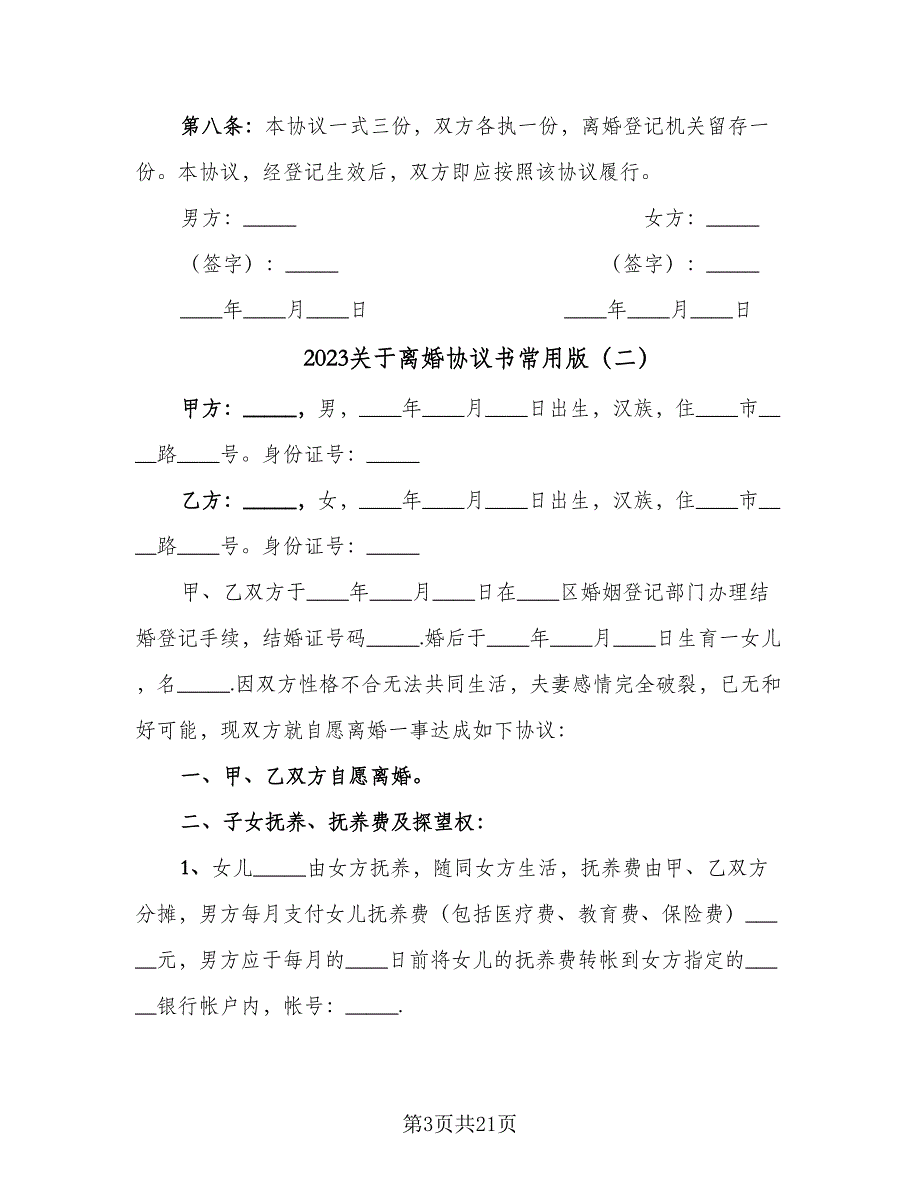 第八条：本协议一式三份，双方各执一份，离婚登记机关留存一
份。本协议，经登记生效后，双方即应按照该协议履行。
男方：_____ 女方：_____
（签字）：_____ （签字）：_____
____年____月____日 ____年____月____日
2023关于离婚协议书常用版（二）
甲方：_____，男，____年____月____日出生，汉族，住____市__
__路____号。身份证号：_____
乙方：_____，女，____年____月____日出生，汉族，住____市__
__路____号。身份证号：_____
甲、乙双方于____年____月____日在____区婚姻登记部门办理结
婚登记手续，结婚证号码_____.婚后于____年____月____日生育一女儿
，名_____.因双方性格不合无法共同生活，夫妻感情完全破裂，已无和
好可能，现双方就自愿离婚一事达成如下协议：
一、甲、乙双方自愿离婚。
二、子女抚养、抚养费及探望权：
1、女儿_____由女方抚养，随同女方生活，抚养费由甲、乙双方
分摊，男方每月支付女儿抚养费（包括医疗费、教育费、保险费）___
__元，男方应于每月的____日前将女儿的抚养费转帐到女方指定的___
__银行帐户内，帐号：_____.
第3页共21页